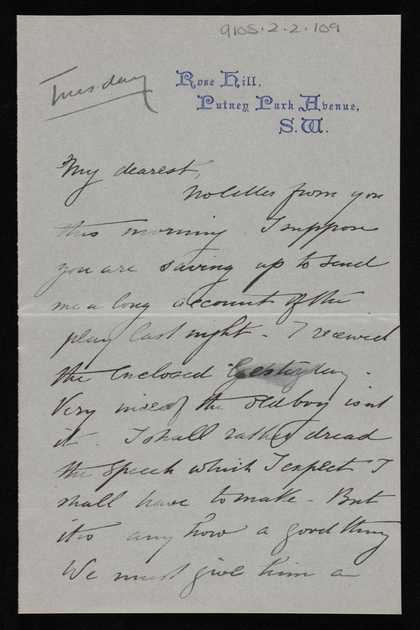 9105-2-2-109
Tuesday
Rose Hill,
Putney Park Avenue,
S.W.
My dearest,
No letter from you
this morning I suppose
you are saving up to send
me a long account of the
play last night - I received
the enclosed yesterday -
Very nice of the old boy isnt
it. I shall rather dread
the speech which I expect I
shall have to make - But
its any how a good thing
We must give him a